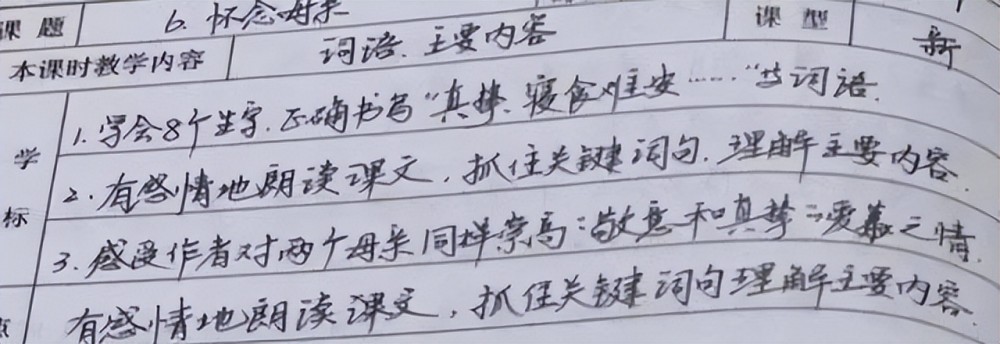 课题 6. 怀念母亲 课型 新
本课时教学内容 词语. 主要内容
1. 学会8个生字. 正确书写“真挚、寝食难安……”等词语.
学 2. 有感情地朗读课文, 抓住关键词句, 理解主要内容.
标 3. 感受作者对两个母亲同样崇高的敬意和真挚的爱慕之情.
点 有感情地朗读课文, 抓住关键词句理解主要内容.